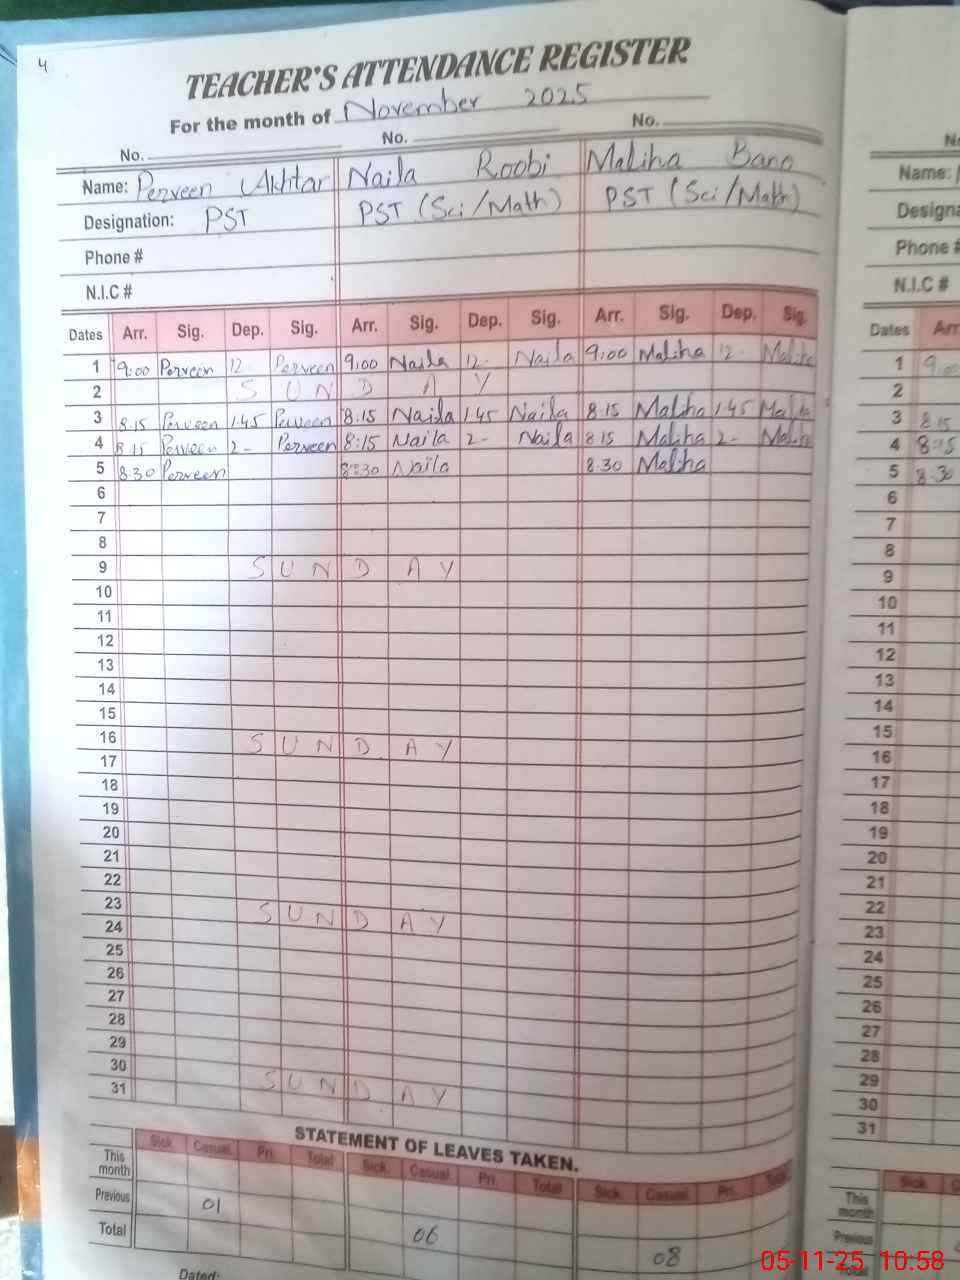 4
TEACHER'S ATTENDANCE REGISTER
For the month of November 2025
No. No. No.
Name: Perveen Akhtar Naila Roobi Maliha Bano
Designation: PST PST (Sci/Math) PST (Sci/Math)
Phone #
N.I.C #
Dates Arr. Sig. Dep. Sig. Arr. Sig. Dep. Sig. Arr. Sig. Dep. Sig.
1 9:00 Perveen 12- Perveen 9:00 Naila 12- Naila 9:00 Maliha 12- Maliha
2 S U N D A Y
3 8.15 Perveen 1.45 Perveen 8.15 Naila 1.45 Naila 8.15 Maliha 1.45 Maliha
4 8.15 Perveen 2- Perveen 8:15 Naila 2- Naila 8.15 Maliha 2- Maliha
5 8.30 Perveen 8:30 Naila 8.30 Maliha
6
7
8
9 S U N D A Y
10
11
12
13
14
15
16 S U N D A Y
17
18
19
20
21
22
23 S U N D A Y
24
25
26
27
28
29
30 S U N D A Y
31
STATEMENT OF LEAVES TAKEN.
Sick. Casual. Pri. Total Sick. Casual. Pri. Total Sick. Casual. Pri. Total
This month
Previous 01 06 08
Total
Dated:
Name:
Phone #
N.I.C #
Dates Arr
1 9.00
2
3 8.15
4 8:15
5 8.30
6
7
8
9
10
11
12
13
14
15
16
17
18
19
20
21
22
23
24
25
26
27
28
29
30
31
Sick.
This month
Previous
Total
05-11-25 10:58